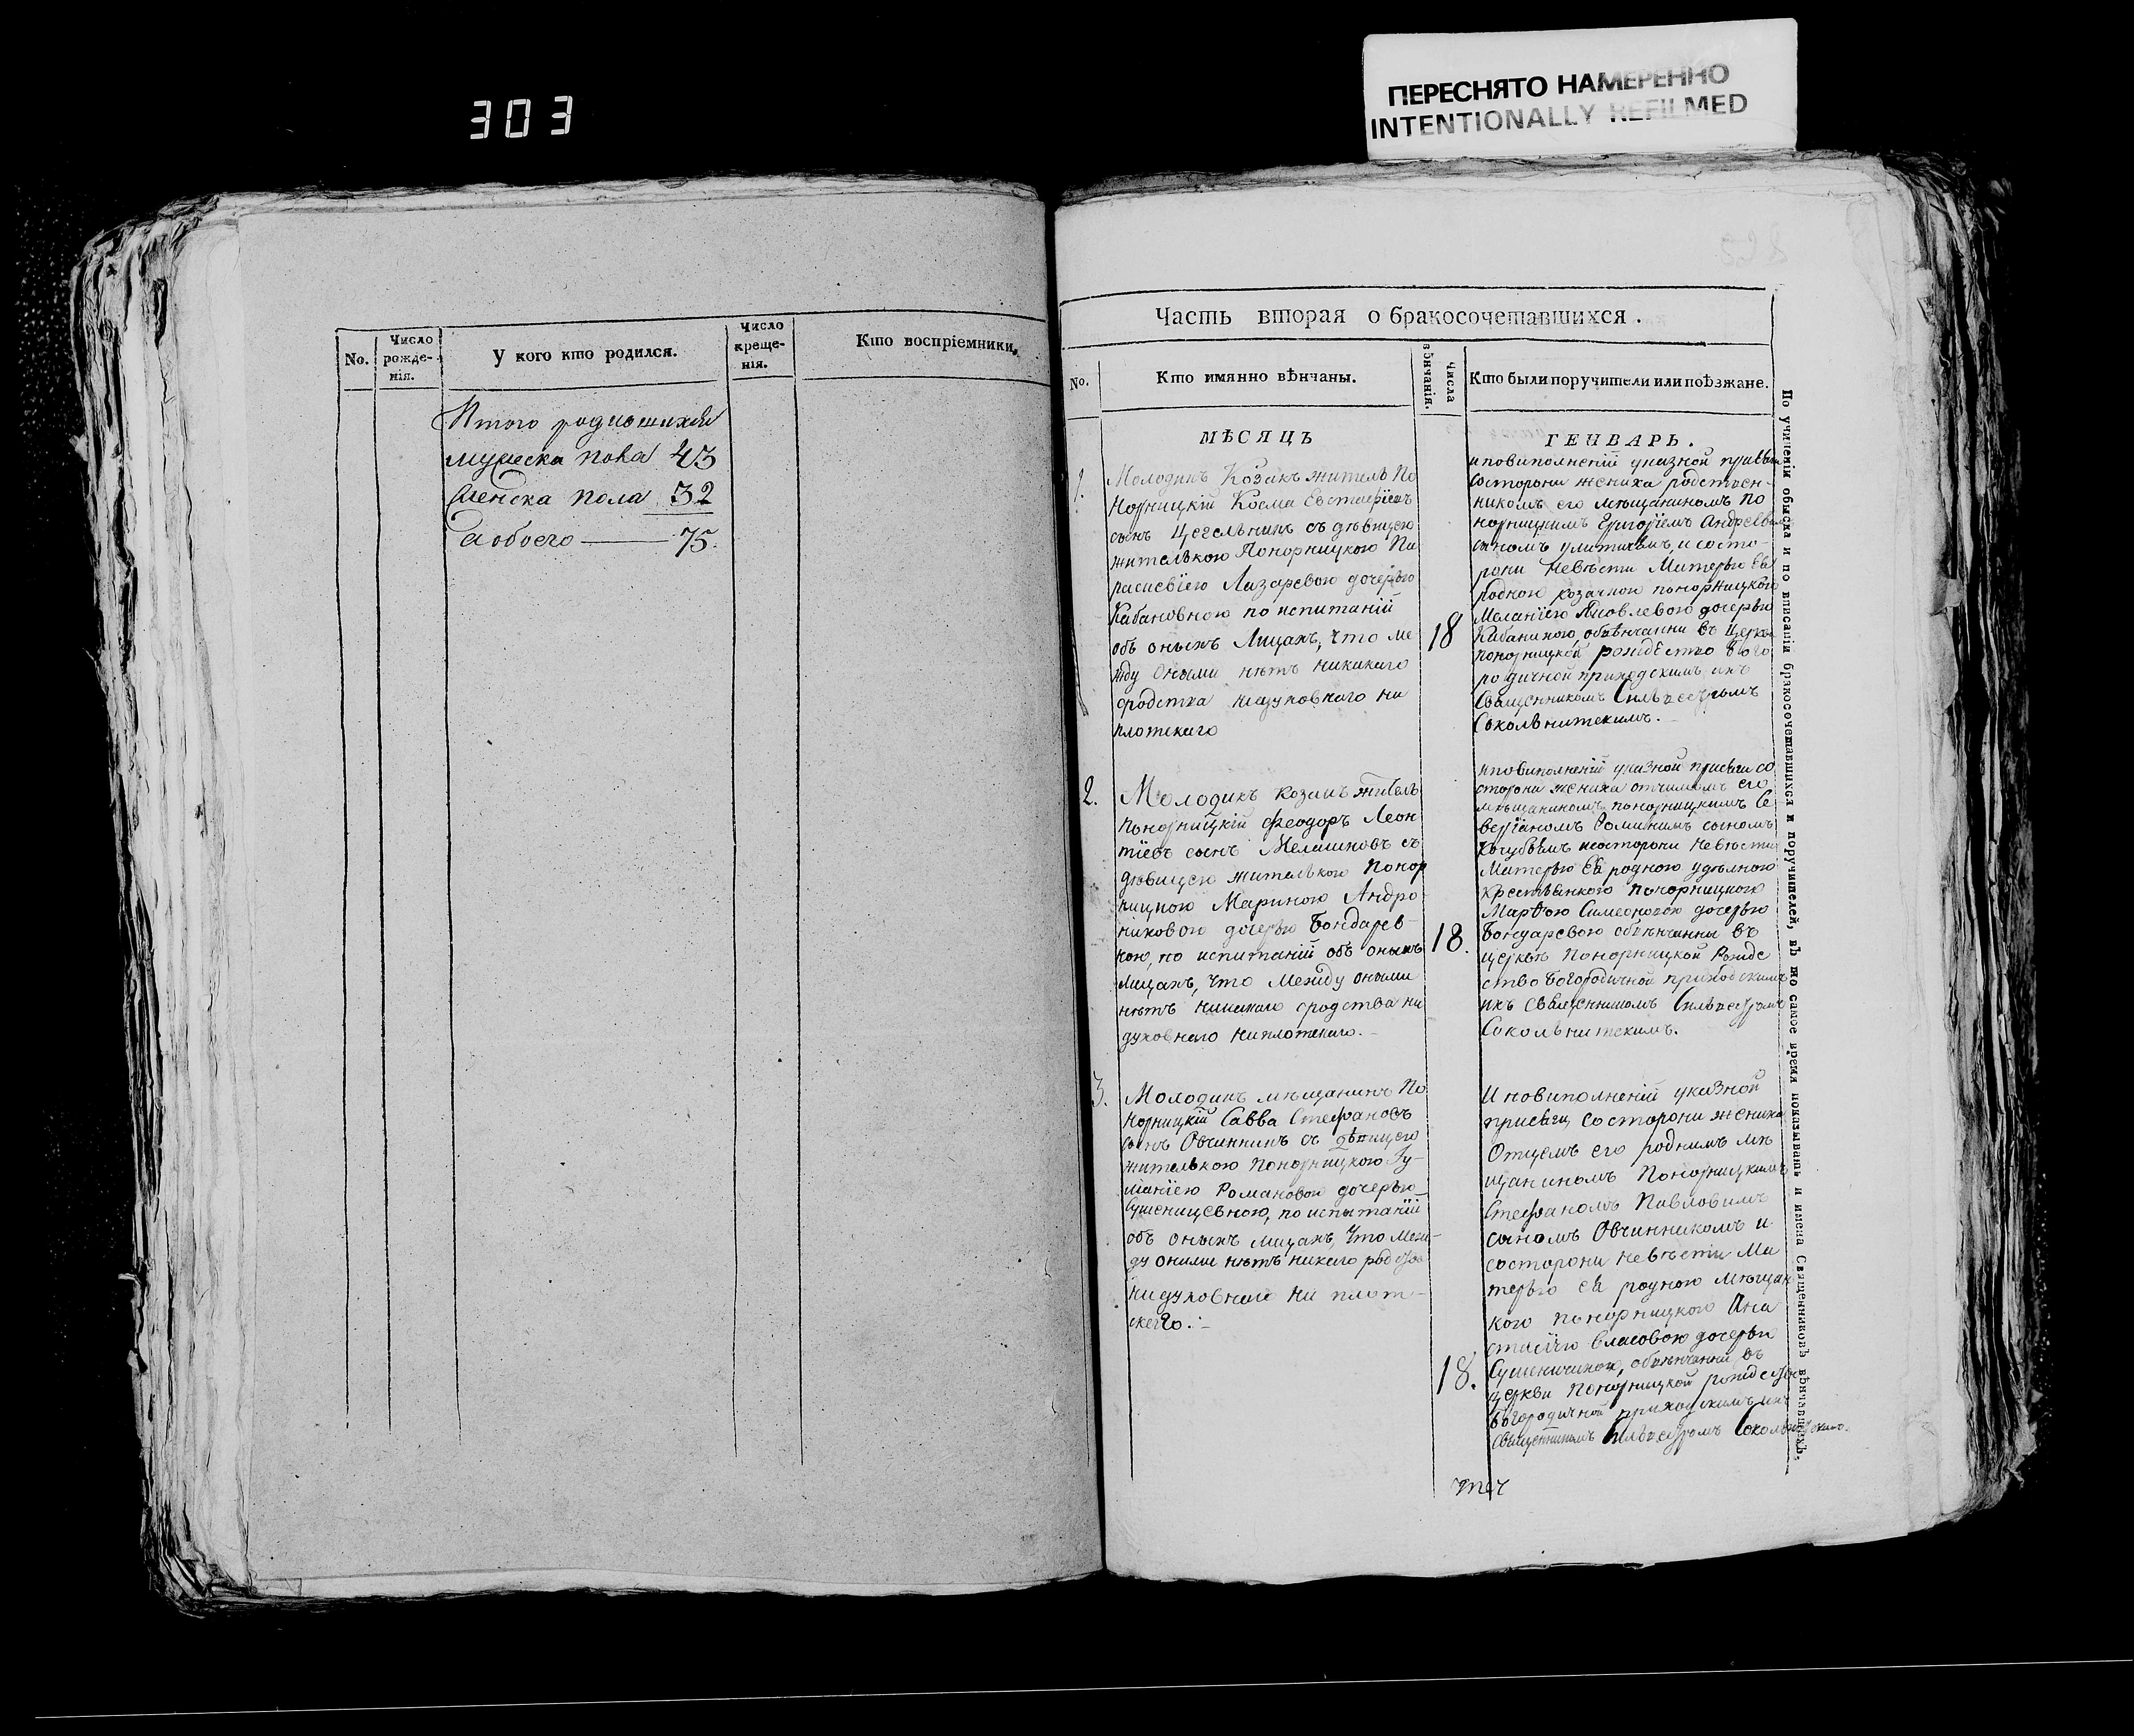 303
ПЕРЕСНЯТО НАМЕРЕННО
INTENTIONALLY REFILMED
No.
Число рожде-нія.
У кого кто родился.
Число креще-нія.
Кто воспріемники.
Итого родившихся
мужеска пола 43
женска пола 32
а обоего — 75.
Часть вторая о бракосочетавшихся.
No.
Кто имянно вѣнчаны.
Числа вѣнчанія.
Кто были поручители или поѣзжане.
По учиненіи обыска и по вписаніи бракосочетавшихся и поручителей, въ то самое время показывать и имена Священниковъ вѣнчавшихъ.
МѢСЯЦЪ
ГЕНВАРЬ.
1.
Молодикъ Козакъ житилъ По
норницкій Косма
сынъ Цегелникъ съ дѣвицею
жителькою Понорницкою Па
раскевіею Лазаревою дочерью
Кабановною по испитаній
объ оныхъ Лицахъ, что ме
жду оными нѣтъ никакаго
сродства нидуховнаго ни
плотскаго
18
иповиполненій указной присяги
состороны жениха родствен-
никомъ его мѣщаниномъ По
норницкимъ Григоріемъ Андреевимъ
сыномъ и состо-
рони Невѣсти Матерью Ея
родною козачкою понорницкою
Меланіею Яковлевою дочерью
Кабаникою, обвѣнчанни въ Церкви
понорницкой рождество Бого
родичной приходскимъ ихъ
Священникомъ Сильвестромъ
Сокольнитскимъ.
2.
Молодикъ козакъ житель
понорницкій Феодоръ Леон
тіевъ сынъ Мелашковъ съ
дѣвицею жителькою Понор
ницкою Мариною Андро-
никовою дочерью Бондарев-
ною, по испитаній объ оныхъ
лицахъ, что Между оными
нѣтъ никакаго сродства ни
духовнаго ниплотскаго.-
18.
иповиполненій указной присяги со
стороны жениха отчимомъ его
мѣщаниномъ понорницкимъ Се
веріаномъ Фоминимъ сыномъ
Кочубѣемъ исосторони невѣсти
Матерью Ея родною удѣлною
крестьянкою понорницкою
Марѳою Симеоновою дочерью
Бондаревою обвѣнчанни въ
церквѣ Понорницкой Рожде
ство Богородичной приходскимъ
ихъ священникомъ Сильвестромъ
Сокольнитскимъ.
3.
Молодикъ мѣщанинъ По
норницкій Савва Стефановъ
сынъ Овчинникъ съ дѣвицею
жителькою понорницкою Гу-
ліаніею Романовою дочерью
по испытаній
объ оныхъ лицахъ, Что меж-
ду оними нѣтъ никаго родства
нидуховнаго ни плот-
скаго.-
18.
И повиполненій указной
присяги состорони жениха
Отцемъ его роднимъ мѣ
щаниномъ Понорницкимъ
Стефаномъ Павловимъ
сыномъ Овчинникомъ и
состорони невѣсти Ма
терью ея родною мѣщан
кою понорницкою Ана
стасіею Власовою дочерью
обвѣнчанни въ
церкви Понорницкой рождество
Богородичной приходскимъ ихъ
Священникомъ Сильвестромъ Сокольнитскимъ.